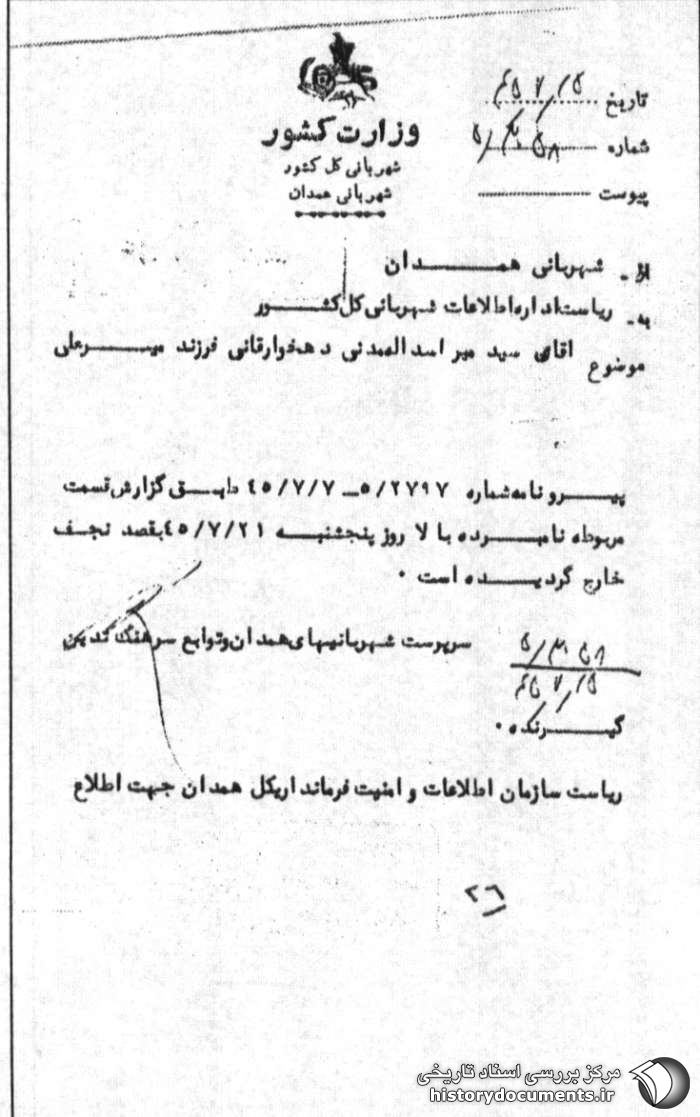 وزارت کشور
شهربانی کل کشور
شهربانی همدان
تاریخ
شماره
پیوست
از - شهربانی همـــــدان
به - ریاست اداره اطلاعات شهربانی کل کشـــور
موضوع اقای سید میر اسداله مدنی دهخوارقانی فرزند میـــرعلی
پیـــرو نامه شماره ۵/۲۷۹۷ - ۴۵/۷/۷ طبـــق گزارش قسمت
مربوطه نامبـــرده بالا روز پنجشنبـــه ۴۵/۷/۲۱ بقصد نجـــف
خارج گردیـــده است ۰
سرپرست شهربانیهای همدان و توابع سرهنگ تدین
گیـــرنده ۰
ریاست سازمان اطلاعات و امنیت فرمانداریکل همدان جهت اطلاع
۲۶
مرکز بررسی اسناد تاریخی
historydocuments.ir